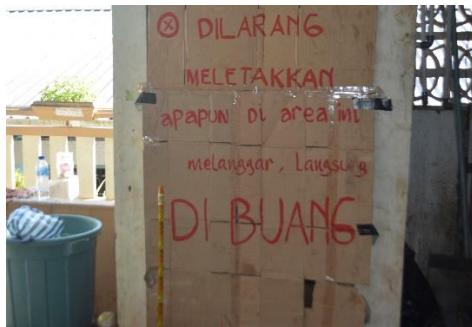 ⓧ DILARANG
MELETAKKAN
apapun Di area ini
melanggar, Langsung
DI BUANG